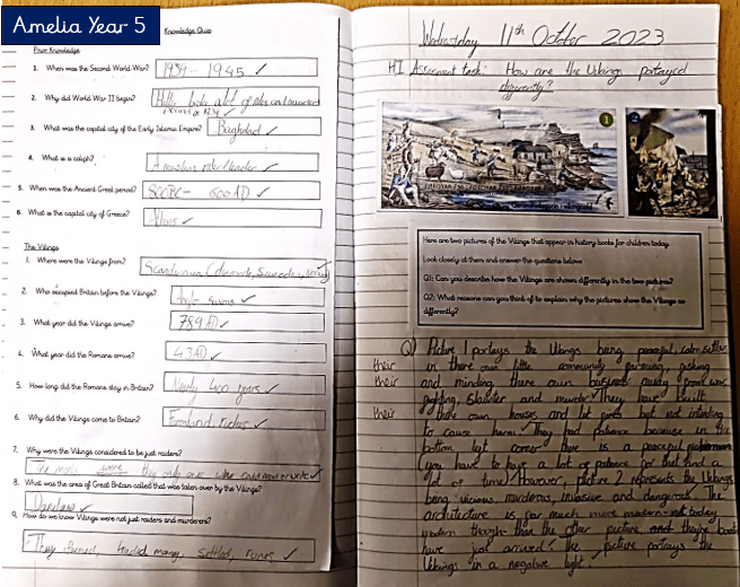 Amelia Year 5
Knowledge Quiz
Prior Knowledge
1. When was the Second World War?
1939 - 1945 ✓
2. Why did World War II begin?
3. What was the capital city of the Early Islamic Empire?
Baghdad ✓
4. What is a caliph?
A muslim ruler/leader ✓
5. When was the Ancient Greek period?
800BC - 600AD ✓
6. What is the capital city of Greece?
✓
The Vikings
1. Where were the Vikings from?
2. Who occupied Britain before the Vikings?
✓
3. What year did the Vikings arrive?
789AD ✓
4. What year did the Romans arrive?
43AD ✓
5. How long did the Romans stay in Britain?
Nearly 400 years ✓
6. Why did the Vikings come to Britain?
✓
7. Why were the Vikings considered to be just raiders?
The were the only ones who could read or write ✓
8. What was the area of Great Britain called that was taken over by the Vikings?
Danelaw ✓
9. How do we know Vikings were not just raiders and murderers?
They farmed, settled, runes ✓
11th October 2023
Assessment task: How are the Vikings portayed
differently?
1
2
FØROYAR
Here are two pictures of the Vikings that appear in history books for children today.
Look closely at them and answer the questions below
Q1: Can you describe how the Vikings are shown differently in the two pictures?
Q2: What reasons can you think of to explain why the pictures show the Vikings so
differently?
Picture 1 portays the Vikings being peaceful, calm settlers
their in there own little community farming, fishing
their and minding there own business away from war,
fighting, slaughter and murder. ✓ They have built
their there own houses and lit fires but not intending
to cause harm. ✓ They had patience because in the
bottom left corner there is a peaceful
(you have to have a lot of patience for that and a
lot of time). However, picture 2 represents the Vikings
being vicious, murderous, invasive and dangerous. The
architecture is far much more modern - not today
modern though - than the other picture and they're
have just arrived. The picture portrays the
Vikings in a negative light.